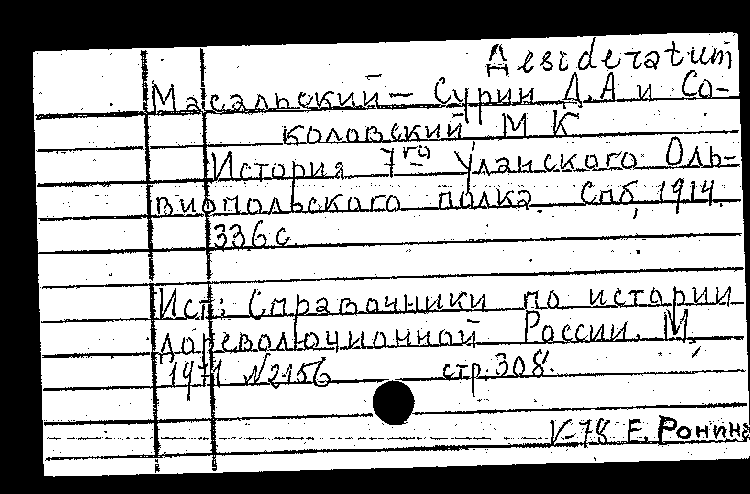 Desideratum
Масальский – Сурин Д.А и Со-
коловский М К
История 7го Уланского Оль-
виопольского полка. Спб, 1914.
336 с.
Ист: Справочники по истории
дореволюционной России. М.
1971 №2156 стр. 308.
V-78 Е. Ронина